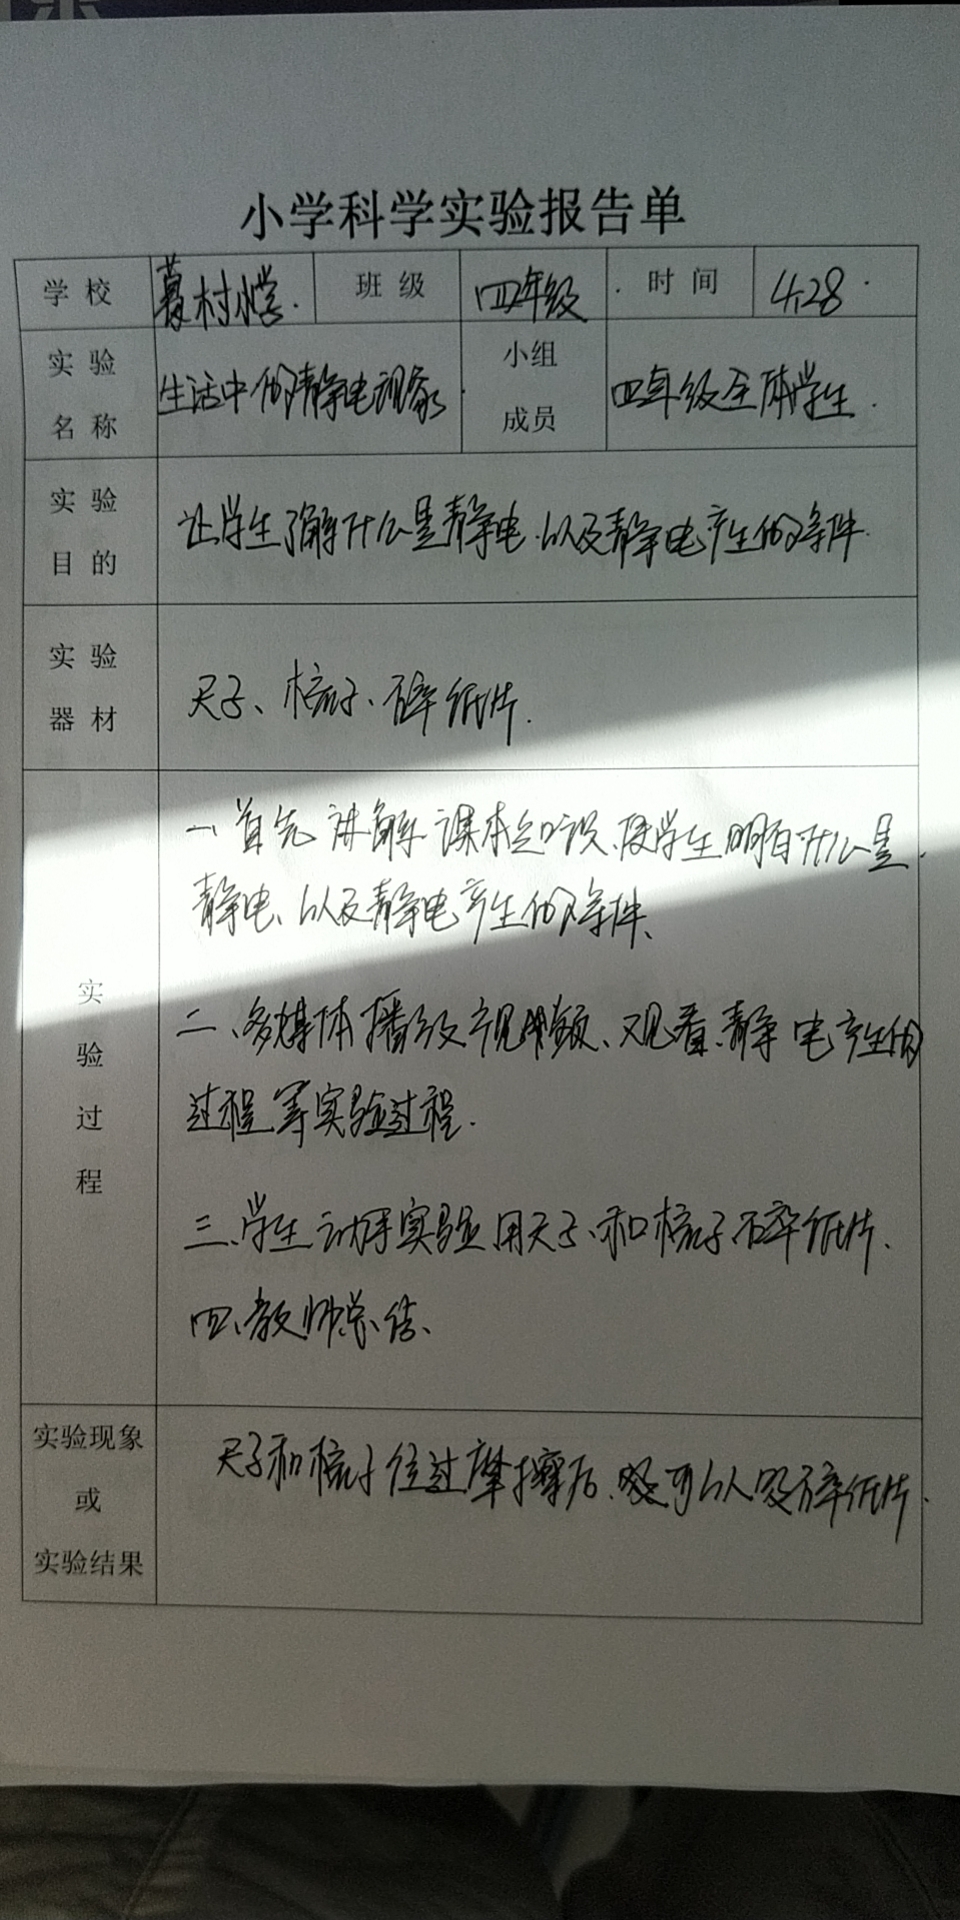 小学科学实验报告单
学校 村小学. 班级 四年级 时间 4.28
实验名称 生活中的静电现象 小组成员 四年级全体学生.
实验目的 让学生了解什么是静电.以及静电产生的条件.
实验器材 尺子、梳子、碎纸片.
实验过程
一、首先讲解课本知识、使学生明白什么是
静电、以及静电产生的条件、
二、多媒体播放视频、观看静电产生的
过程等实验过程.
三、学生动手实验用尺子、和梳子碎纸片、
四、教师总结、
实验现象
或
实验结果
尺子和梳子经过摩擦后、可以吸碎纸片.